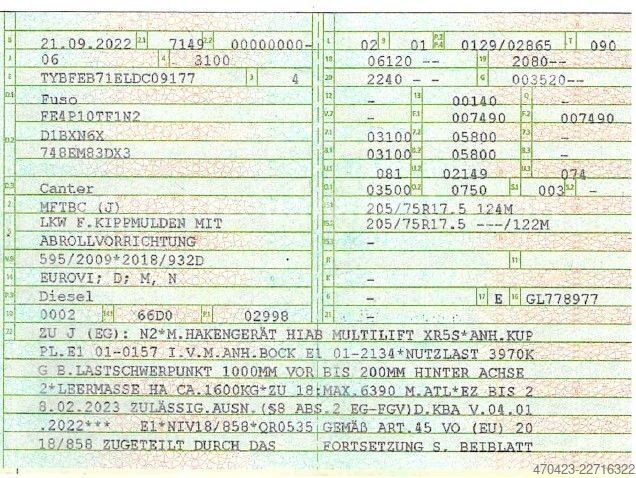 B 21.09.2022 2.1 7149 2.2 00000000-
J 06 4 3100
E TYBFEB71ELDC09177 3 4
D.1 Fuso
FE4P10TF1N2
D.2 D1BXN6X
748EM83DX3
D.3 Canter
2 MFTBC (J)
5 LKW F.KIPPMULDEN MIT
ABROLLVORRICHTUNG
V.9 595/2009*2018/932D
14 EUROVI; D; M, N
P.3 Diesel
10 0002 14.1 66D0 P.1 02998
L 02 9 01 P.2 P.4 0129/02865 T 090
18 06120 -- 19 2080--
20 2240 -- G 003520--
12 - 13 00140 Q -
V.7 - F.1 007490 F.2 007490
7.1 03100 7.2 05800 7.3 -
8.1 03100 8.2 05800 8.3 -
U.1 081 U.2 02149 U.3 074
O.1 03500 O.2 0750 S.1 003 S.2 -
15.1 205/75R17.5 124M
15.2 205/75R17.5 ---/122M
15.3 -
R - 11
K -
6 - 17 E 16 GL778977
21 -
22 ZU J (EG): N2*M.HAKENGERÄT HIAB MULTILIFT XR5S*ANH.KUP
PL.E1 01-0157 I.V.M.ANH.BOCK E1 01-2134*NUTZLAST 3970K
G B.LASTSCHWERPUNKT 1000MM VOR BIS 200MM HINTER ACHSE
2*LEERMASSE HA CA.1600KG*ZU 18:MAX.6390 M.ATL*EZ BIS 2
8.02.2023 ZULÄSSIG.AUSN.(§8 ABS.2 EG-FGV)D.KBA V.04.01
.2022*** E1*NIV18/858*QR0535 GEMÄß ART.45 VO (EU) 20
18/858 ZUGETEILT DURCH DAS FORTSETZUNG S. BEIBLATT
470423-22716322